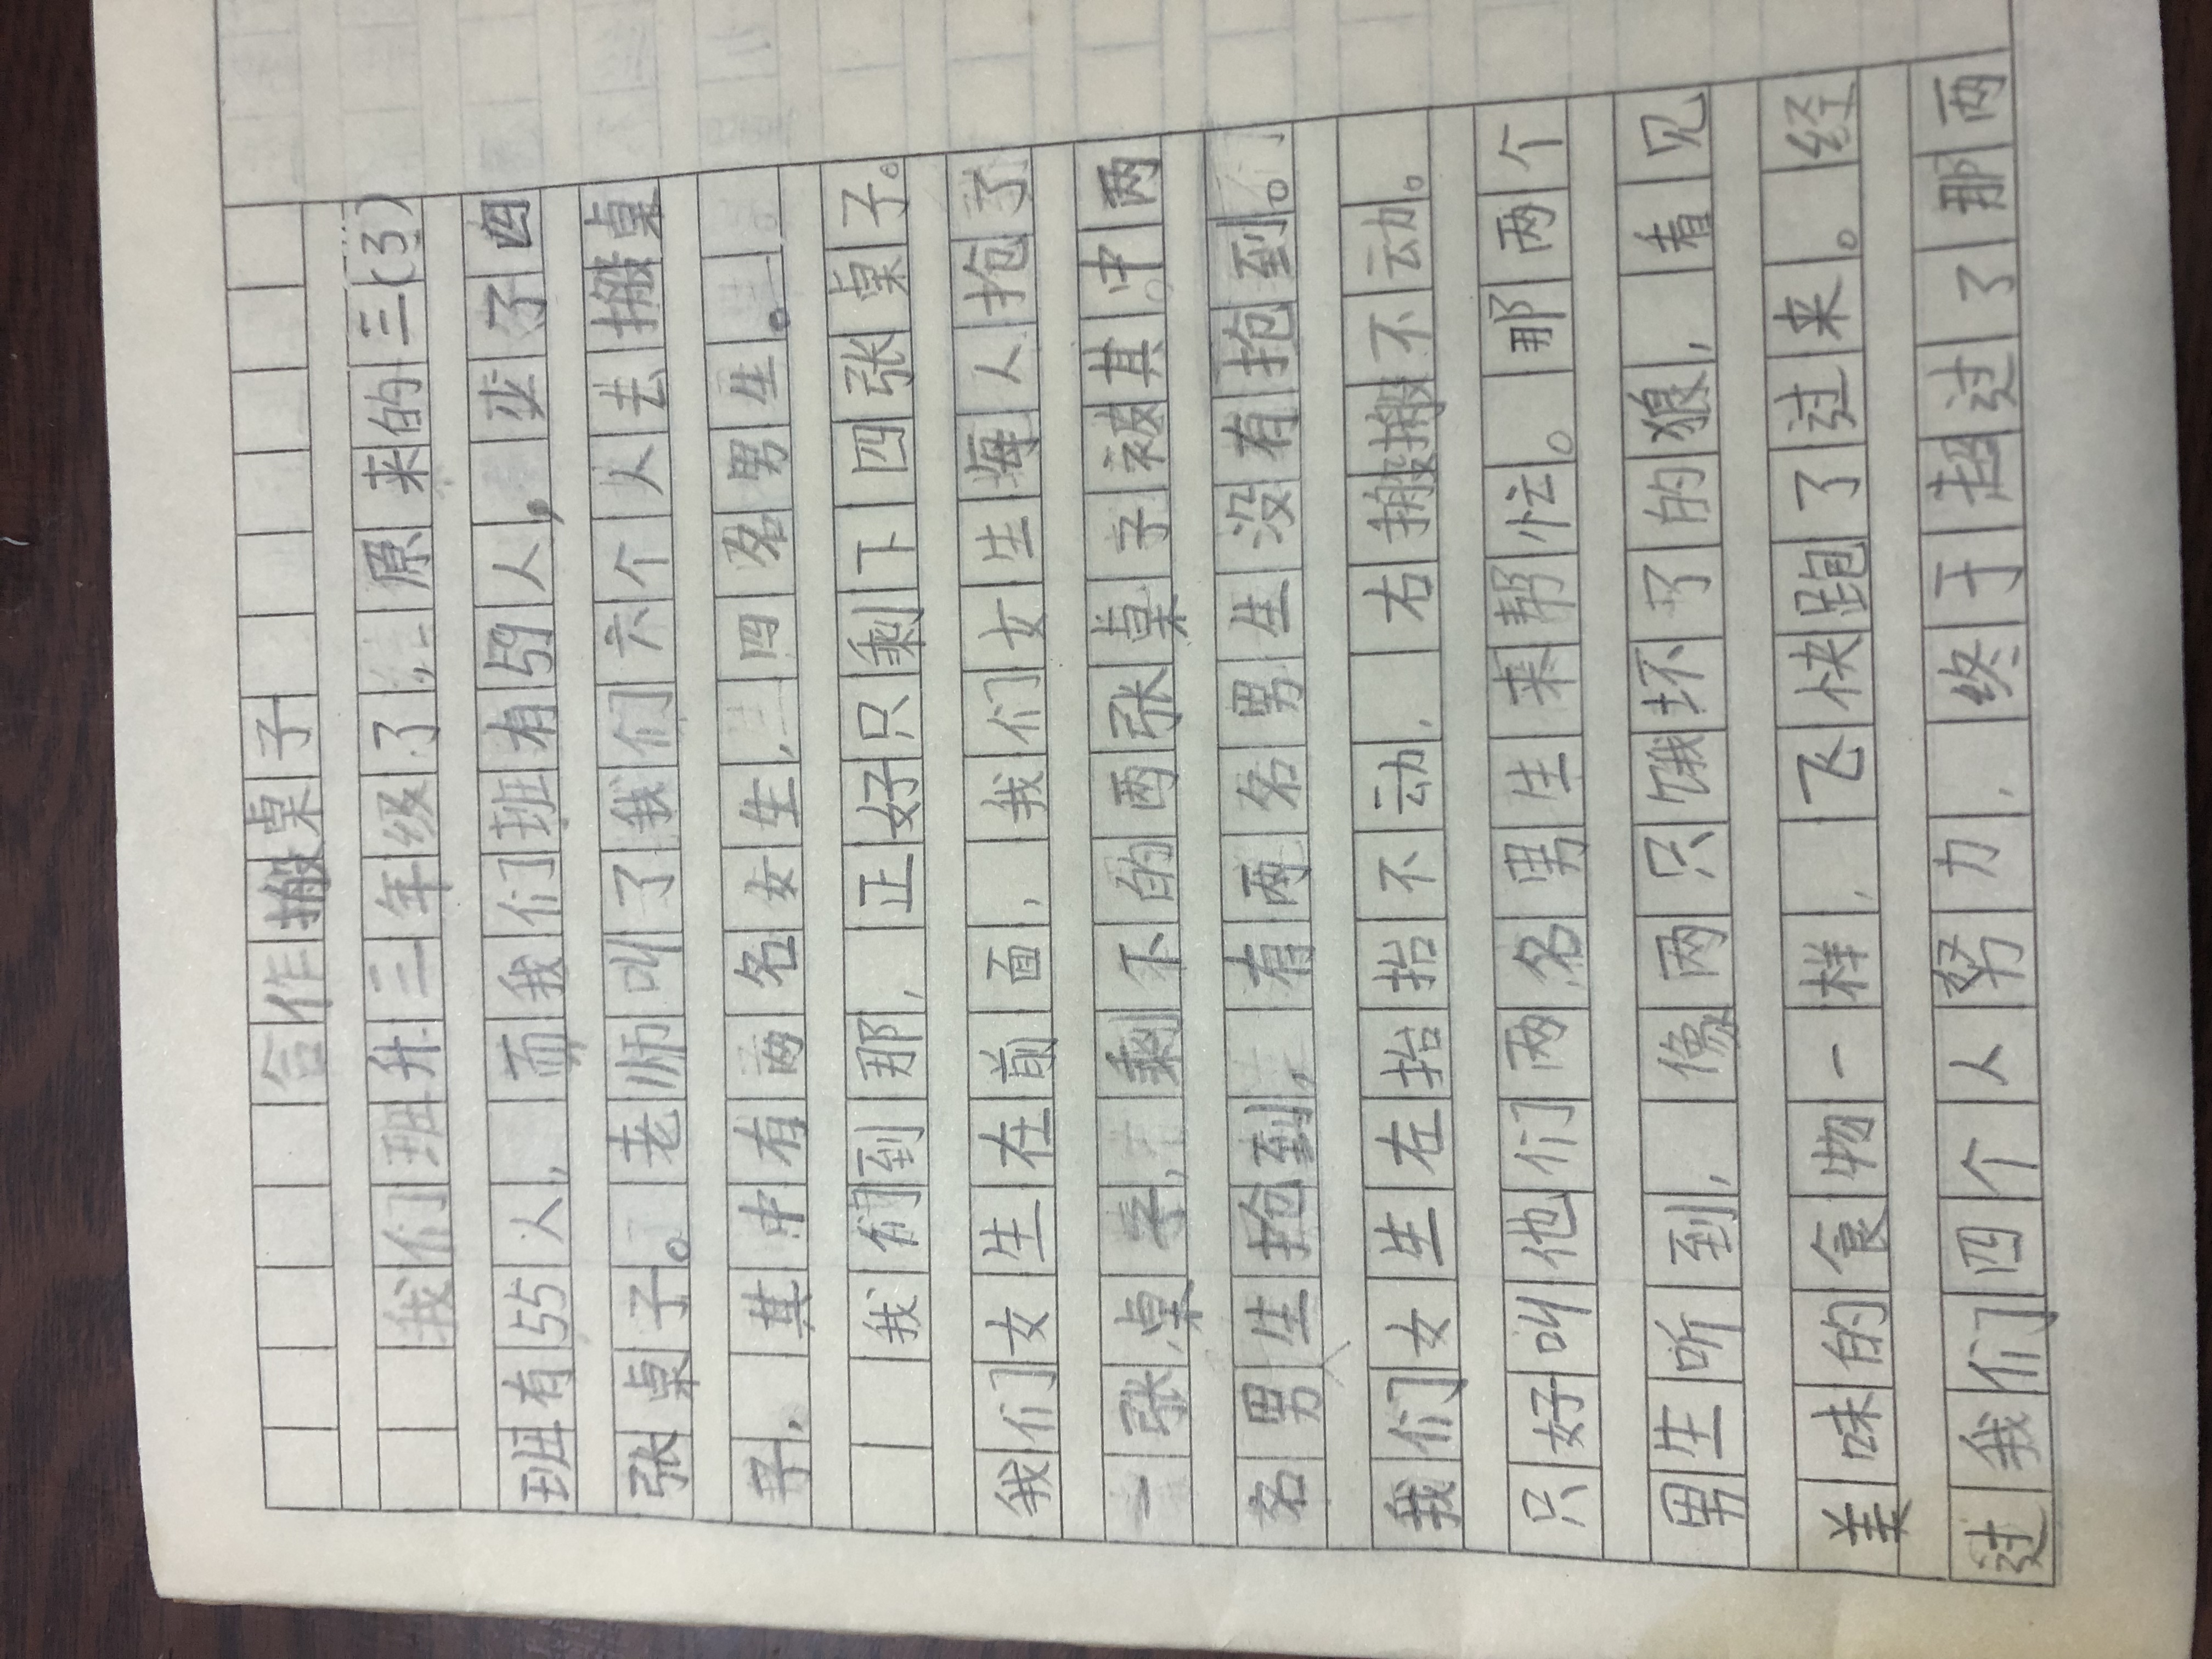 合作搬桌子
我们班升三年级了，原来的三(3)
班有55人，而我们班有59人，少了四
张桌子。老师叫了我们六个人去搬桌
子，其中有两名女生，四名男生。
我们到那，正好只剩下四张桌子。
我们女生在前面，我们女生每人抢了
一张桌子，剩下的两张桌子被其中两
名男生抢到，有两名男生没有抢到。
我们女生左抬抬不动，右搬搬不动。
只好叫他们两名男生来帮忙。那两个
男生听到，像两只饿坏了的狼，看见
美味的食物一样，飞快跑了过来。经
过我们四个人努力，终于超过了那两